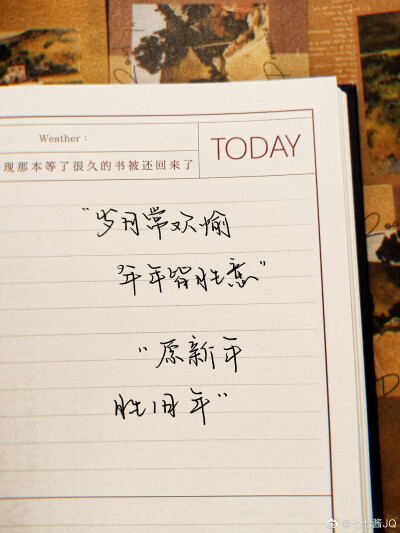 Weather：
TODAY
现那本等了很久的书被还回来了
"岁月常欢愉
年年皆胜意"
"原新年
胜旧年"
酱JQ